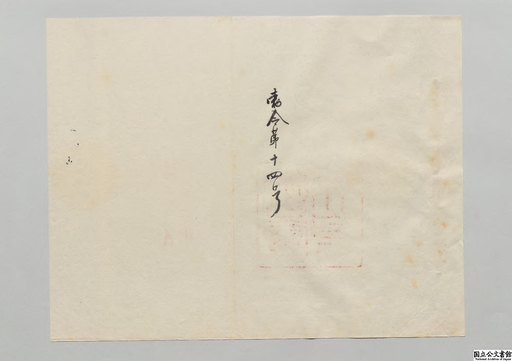 勅令第十四号
国立公文書館
National Archives of Japan